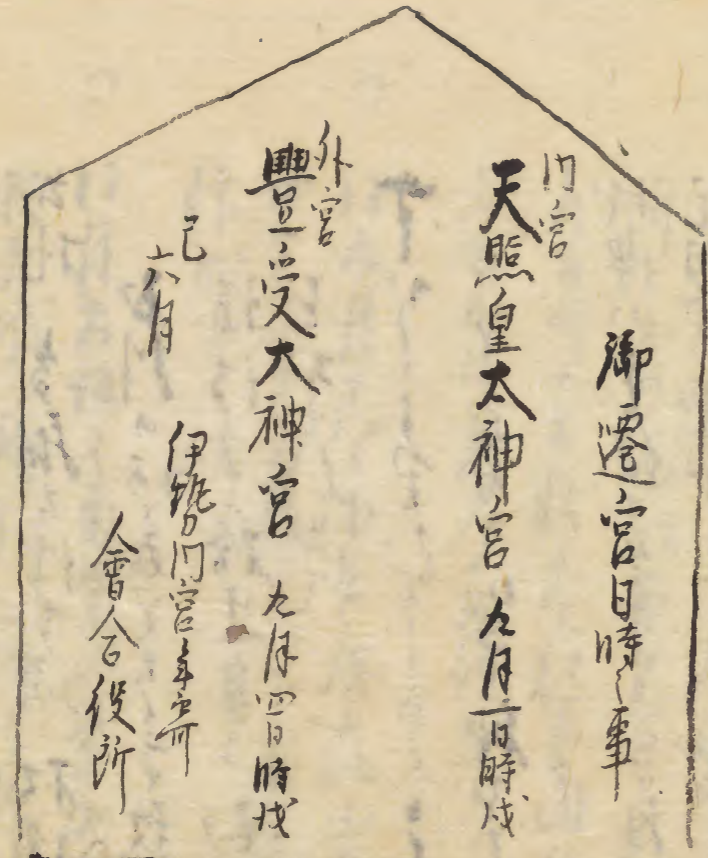 御遷宮日時之事
内宮
天照皇太神宮 九月一日時戌
外宮
豊受大神宮 九月四日時戌
己六月
伊勢内宮年寄
會合役所